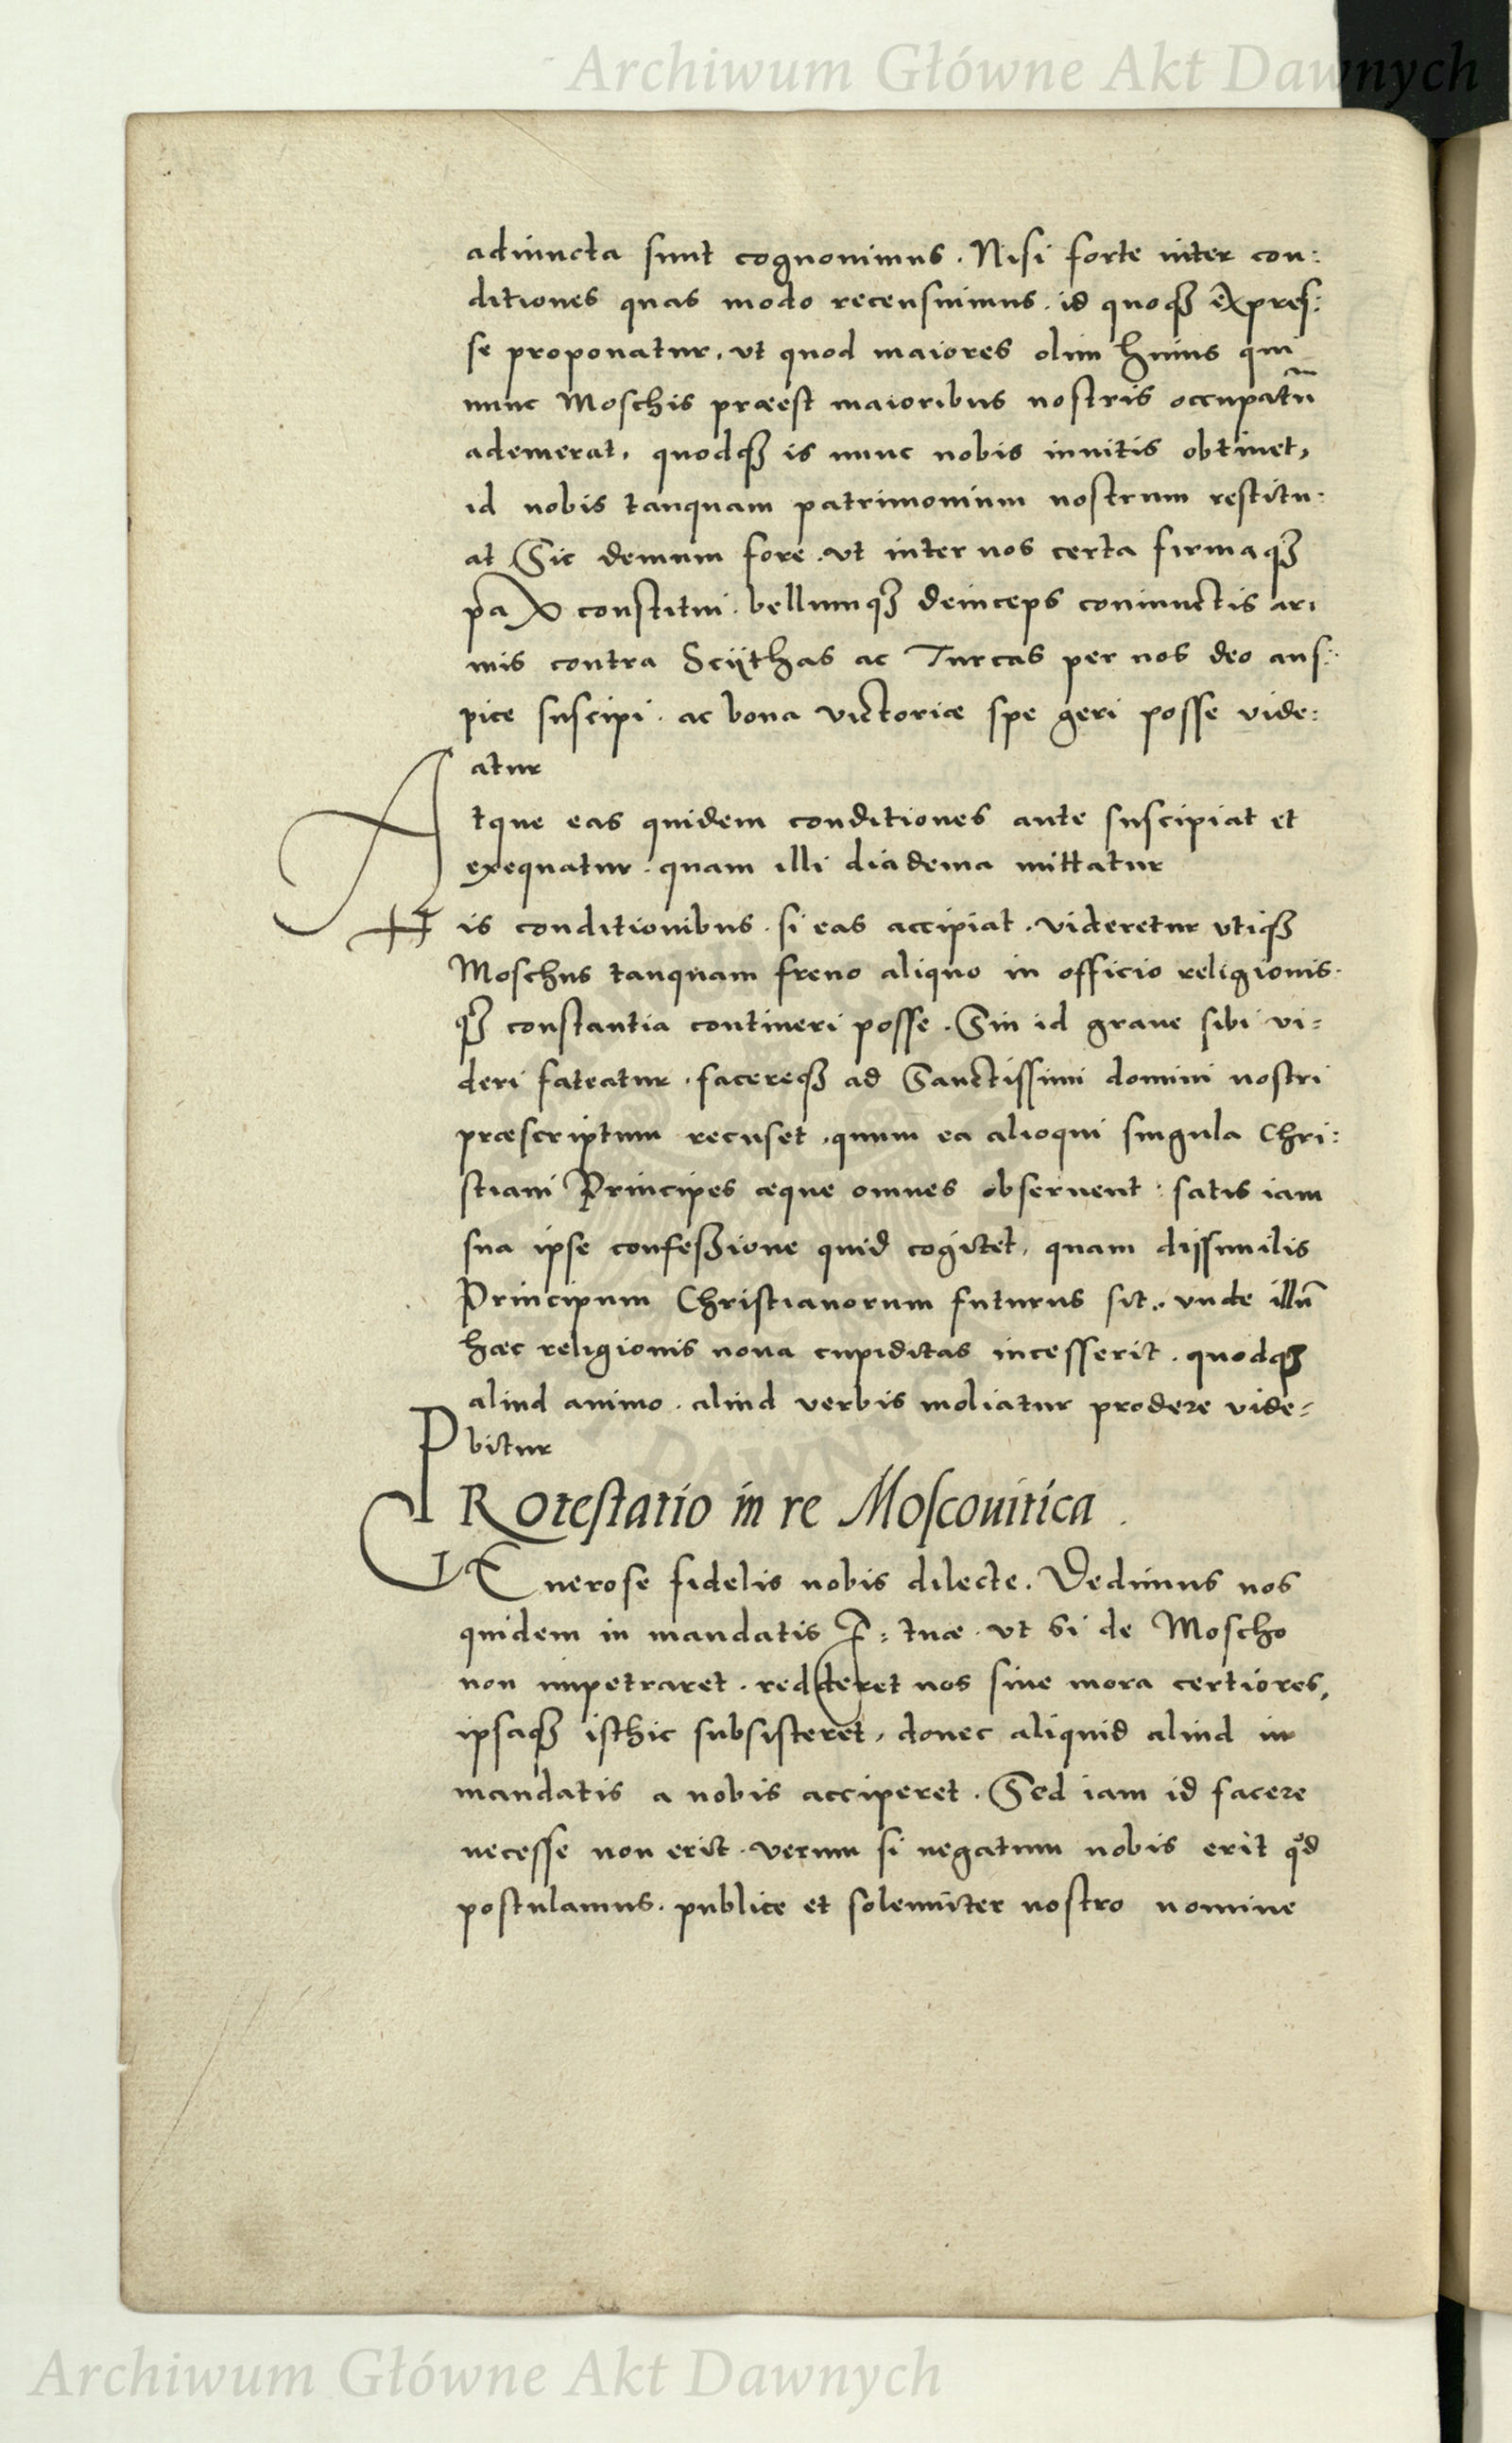 Archiwum Główne Akt Dawnych
adiuncta sunt cognouimus. Nisi forte inter con:
ditiones quas modo recensuimus. id quoqꝫ expres:
se proponatur, ut quod maiores olim huius qui
nunc Moschis præest maioribus nostris occupatū
ademerat, quodqꝫ is nunc nobis inuitis obtinet,
id nobis tanquam patrimonium nostrum restitu:
at Sic demum fore. ut inter nos certa firmaqꝫ
pax constitui. bellumqꝫ deinceps coniunctis ar:
mis contra Scÿthas ac Turcas per nos deo aus:
pice suscipi. ac bona victoriæ spe geri posse vide:
atur
Atque eas quidem conditiones ante suscipiat et
exequatur. quam illi diadema mittatur
His conditionibus. si eas accipiat. videretur utiqꝫ
Moschus tanquam freno aliquo in officio religionis.
qꝫ constantia contineri posse. Sin id graue sibi vi=
deri fateatur. facereqꝫ ad Sanctissimi domini nostri
præscriptum recuset, quum ea alioqui singula Chri:
stiani Principes æque omnes obseruent: satis iam
sua ipse confeßione quid cogitet, quam dissimilis
Principum Christianorum futurus sit. unde illū
hæc religionis noua cupiditas incesserit. quodqꝫ
aliud animo. aliud verbis moliatur prodere vide=
bitur
PRotestatio in re Moscouitica.
GEnerose fidelis nobis dilecte. Dedimus nos
quidem in mandatis F: tuæ. ut Si de Moscho
non impetraret. redderet nos sine mora certiores,
ipsaqꝫ isthic subsisteret, donec aliquid aliud in
mandatis a nobis acciperet. Sed iam id facere
necesse non erit. verum si negatum nobis erit qd
postulamus. publice et solemniter nostro nomine
DAWNYCH
Archiwum Główne Akt Dawnych